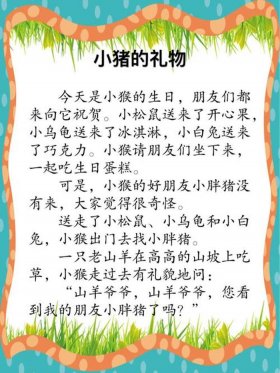 小猪的礼物
今天是小猴的生日，朋友们都
来向它祝贺。小松鼠送来了开心果，
小乌龟送来了冰淇淋，小白兔送来
了巧克力。小猴请朋友们坐下来，
一起吃生日蛋糕。
可是，小猴的好朋友小胖猪没
有来，大家觉得很奇怪。
送走了小松鼠、小乌龟和小白
兔，小猴出门去找小胖猪。
一只老山羊在高高的山坡上吃
草，小猴走过去有礼貌地问：
“山羊爷爷，山羊爷爷，您看
到我的朋友小胖猪了吗？”